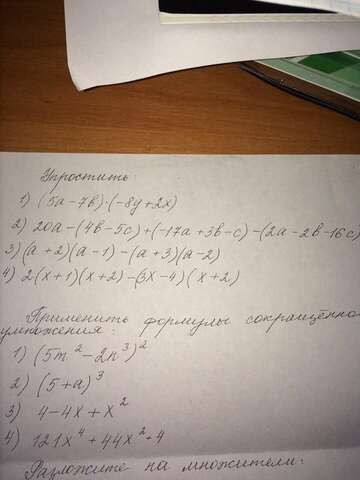 Упростить:
1) (5a-7в)·(-8y+2x)
2) 20a-(4в-5c)+(-17a+3в-c)-(2a-2в-16c)
3) (a+2)(a-1)-(a+3)(a-2)
4) 2(x+1)(x+2)-(3x-4)(x+2)
Применить формулы сокращённого
умножения:
1) (5m²-2n³)²
2) (5+a)³
3) 4-4x+x²
4) 121x⁴+44x²+4
Разложите на множители: